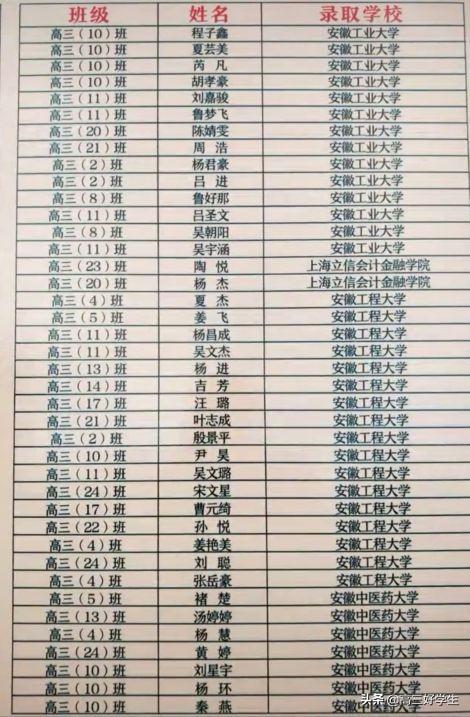 班级 姓名 录取学校
高三(10)班 程子鑫 安徽工业大学
高三(10)班 夏芸美 安徽工业大学
高三(10)班 芮 凡 安徽工业大学
高三(10)班 胡孝豪 安徽工业大学
高三(11)班 刘嘉骏 安徽工业大学
高三(11)班 鲁梦飞 安徽工业大学
高三(20)班 陈婧雯 安徽工业大学
高三(21)班 周 浩 安徽工业大学
高三(2)班 杨君豪 安徽工业大学
高三(2)班 吕 进 安徽工业大学
高三(8)班 鲁好那 安徽工业大学
高三(11)班 吕圣文 安徽工业大学
高三(8)班 吴朝阳 安徽工业大学
高三(11)班 吴宇涵 安徽工业大学
高三(23)班 陶 悦 上海立信会计金融学院
高三(20)班 杨 杰 上海立信会计金融学院
高三(4)班 夏 杰 安徽工程大学
高三(5)班 姜 飞 安徽工程大学
高三(11)班 杨昌成 安徽工程大学
高三(11)班 吴文杰 安徽工程大学
高三(13)班 杨 进 安徽工程大学
高三(14)班 吉 芳 安徽工程大学
高三(17)班 汪 璐 安徽工程大学
高三(21)班 叶志成 安徽工程大学
高三(2)班 殷景平 安徽工程大学
高三(10)班 尹 昊 安徽工程大学
高三(11)班 吴文璐 安徽工程大学
高三(24)班 宋文星 安徽工程大学
高三(17)班 曹元绮 安徽工程大学
高三(22)班 孙 悦 安徽工程大学
高三(4)班 姜艳美 安徽工程大学
高三(24)班 刘 聪 安徽工程大学
高三(4)班 张岳豪 安徽工程大学
高三(5)班 褚 楚 安徽中医药大学
高三(13)班 汤婷婷 安徽中医药大学
高三(4)班 杨 慧 安徽中医药大学
高三(24)班 黄 婷 安徽中医药大学
高三(10)班 刘星宇 安徽中医药大学
高三(10)班 杨 环 安徽中医药大学
高三(10)班 秦 燕 安徽中医药大学
头条 @高三好学生